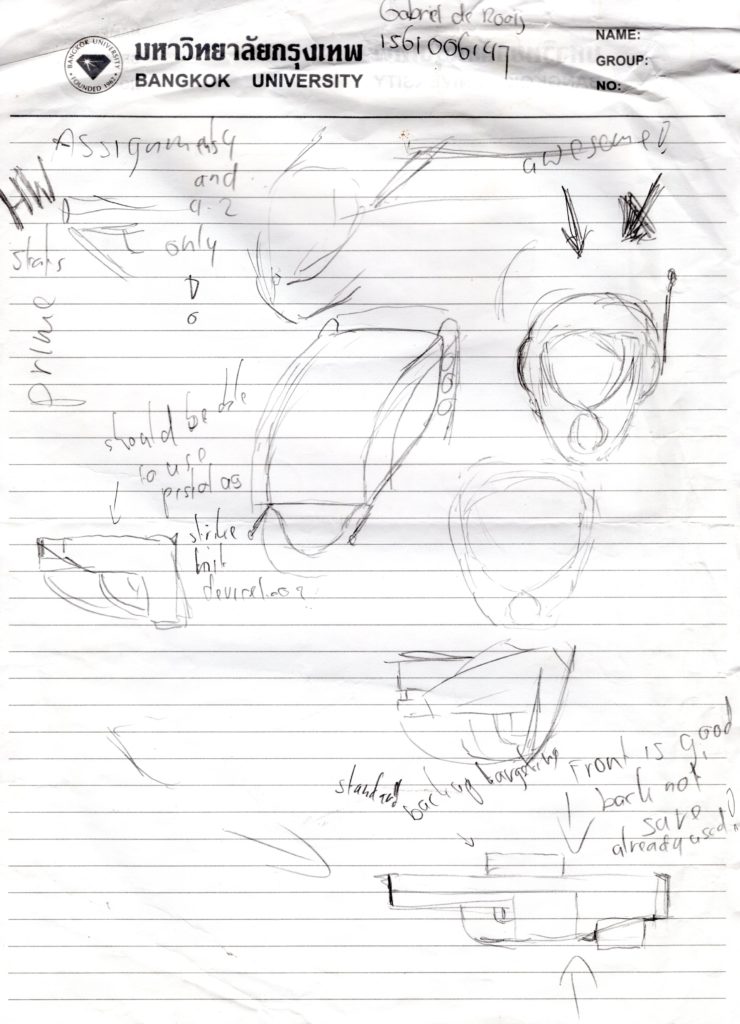 Gabriel de Rooij
1561006147
NAME:
GROUP:
NO:
มหาวิทยาลัยกรุงเทพ
BANGKOK UNIVERSITY
BANGKOK UNIVERSITY
FOUNDED 1962
Assignment 4
and
4.2
only
HW
awesome!
prime
should be able
to use
pistol as
strike
device
standard
Front is good,
back not
save
already used